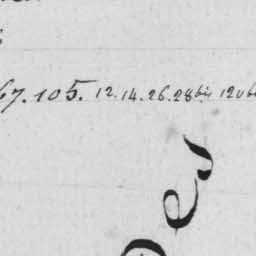 67.105. 12.14.26.28bis 120b
Des